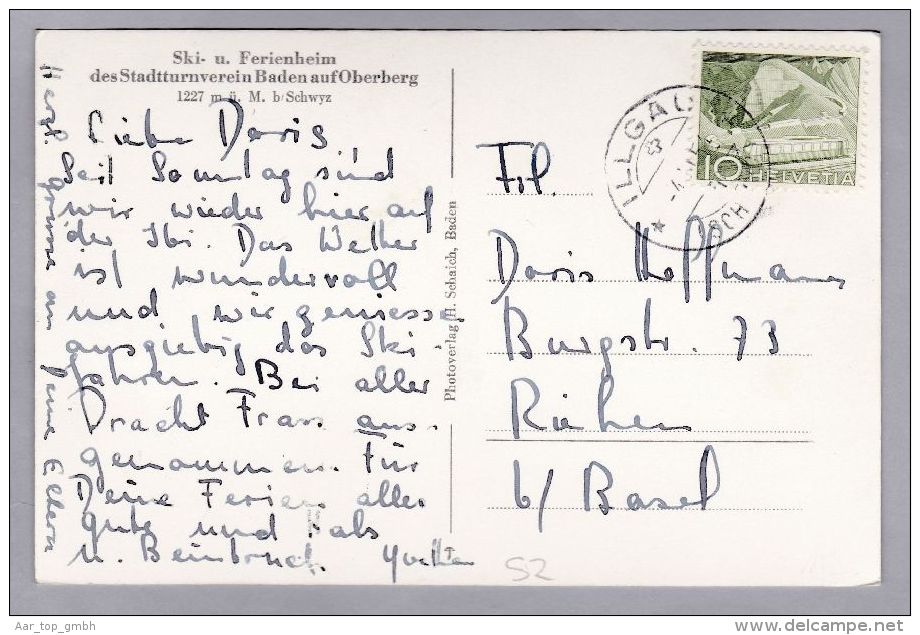 Ski- u. Ferienheim
des Stadtturnverein Baden auf Oberberg
1227 m ü. M. b/Schwyz
Liebe Doris
Seit Sonntag sind
wir wieder hier auf
der Ibi. Das Wetter
ist wundervoll
und wir geniesse
ausgiebig das Ski-
fahren. Bei aller
Pracht Frass aus-
genommen. Für
Deine Ferien alles
gute und Hals
u. Beinbruch Yvette
Herzl. Grüsse an Deine Eltern
Photoverlag H. Schaich, Baden
ILLGAU
SCH
10 HELVETIA
Frl.
Doris Hoffmann
Burgstr. 73
Riehen
b/ Basel
SZ
Aar_top_gmbh
www.delcampe.net